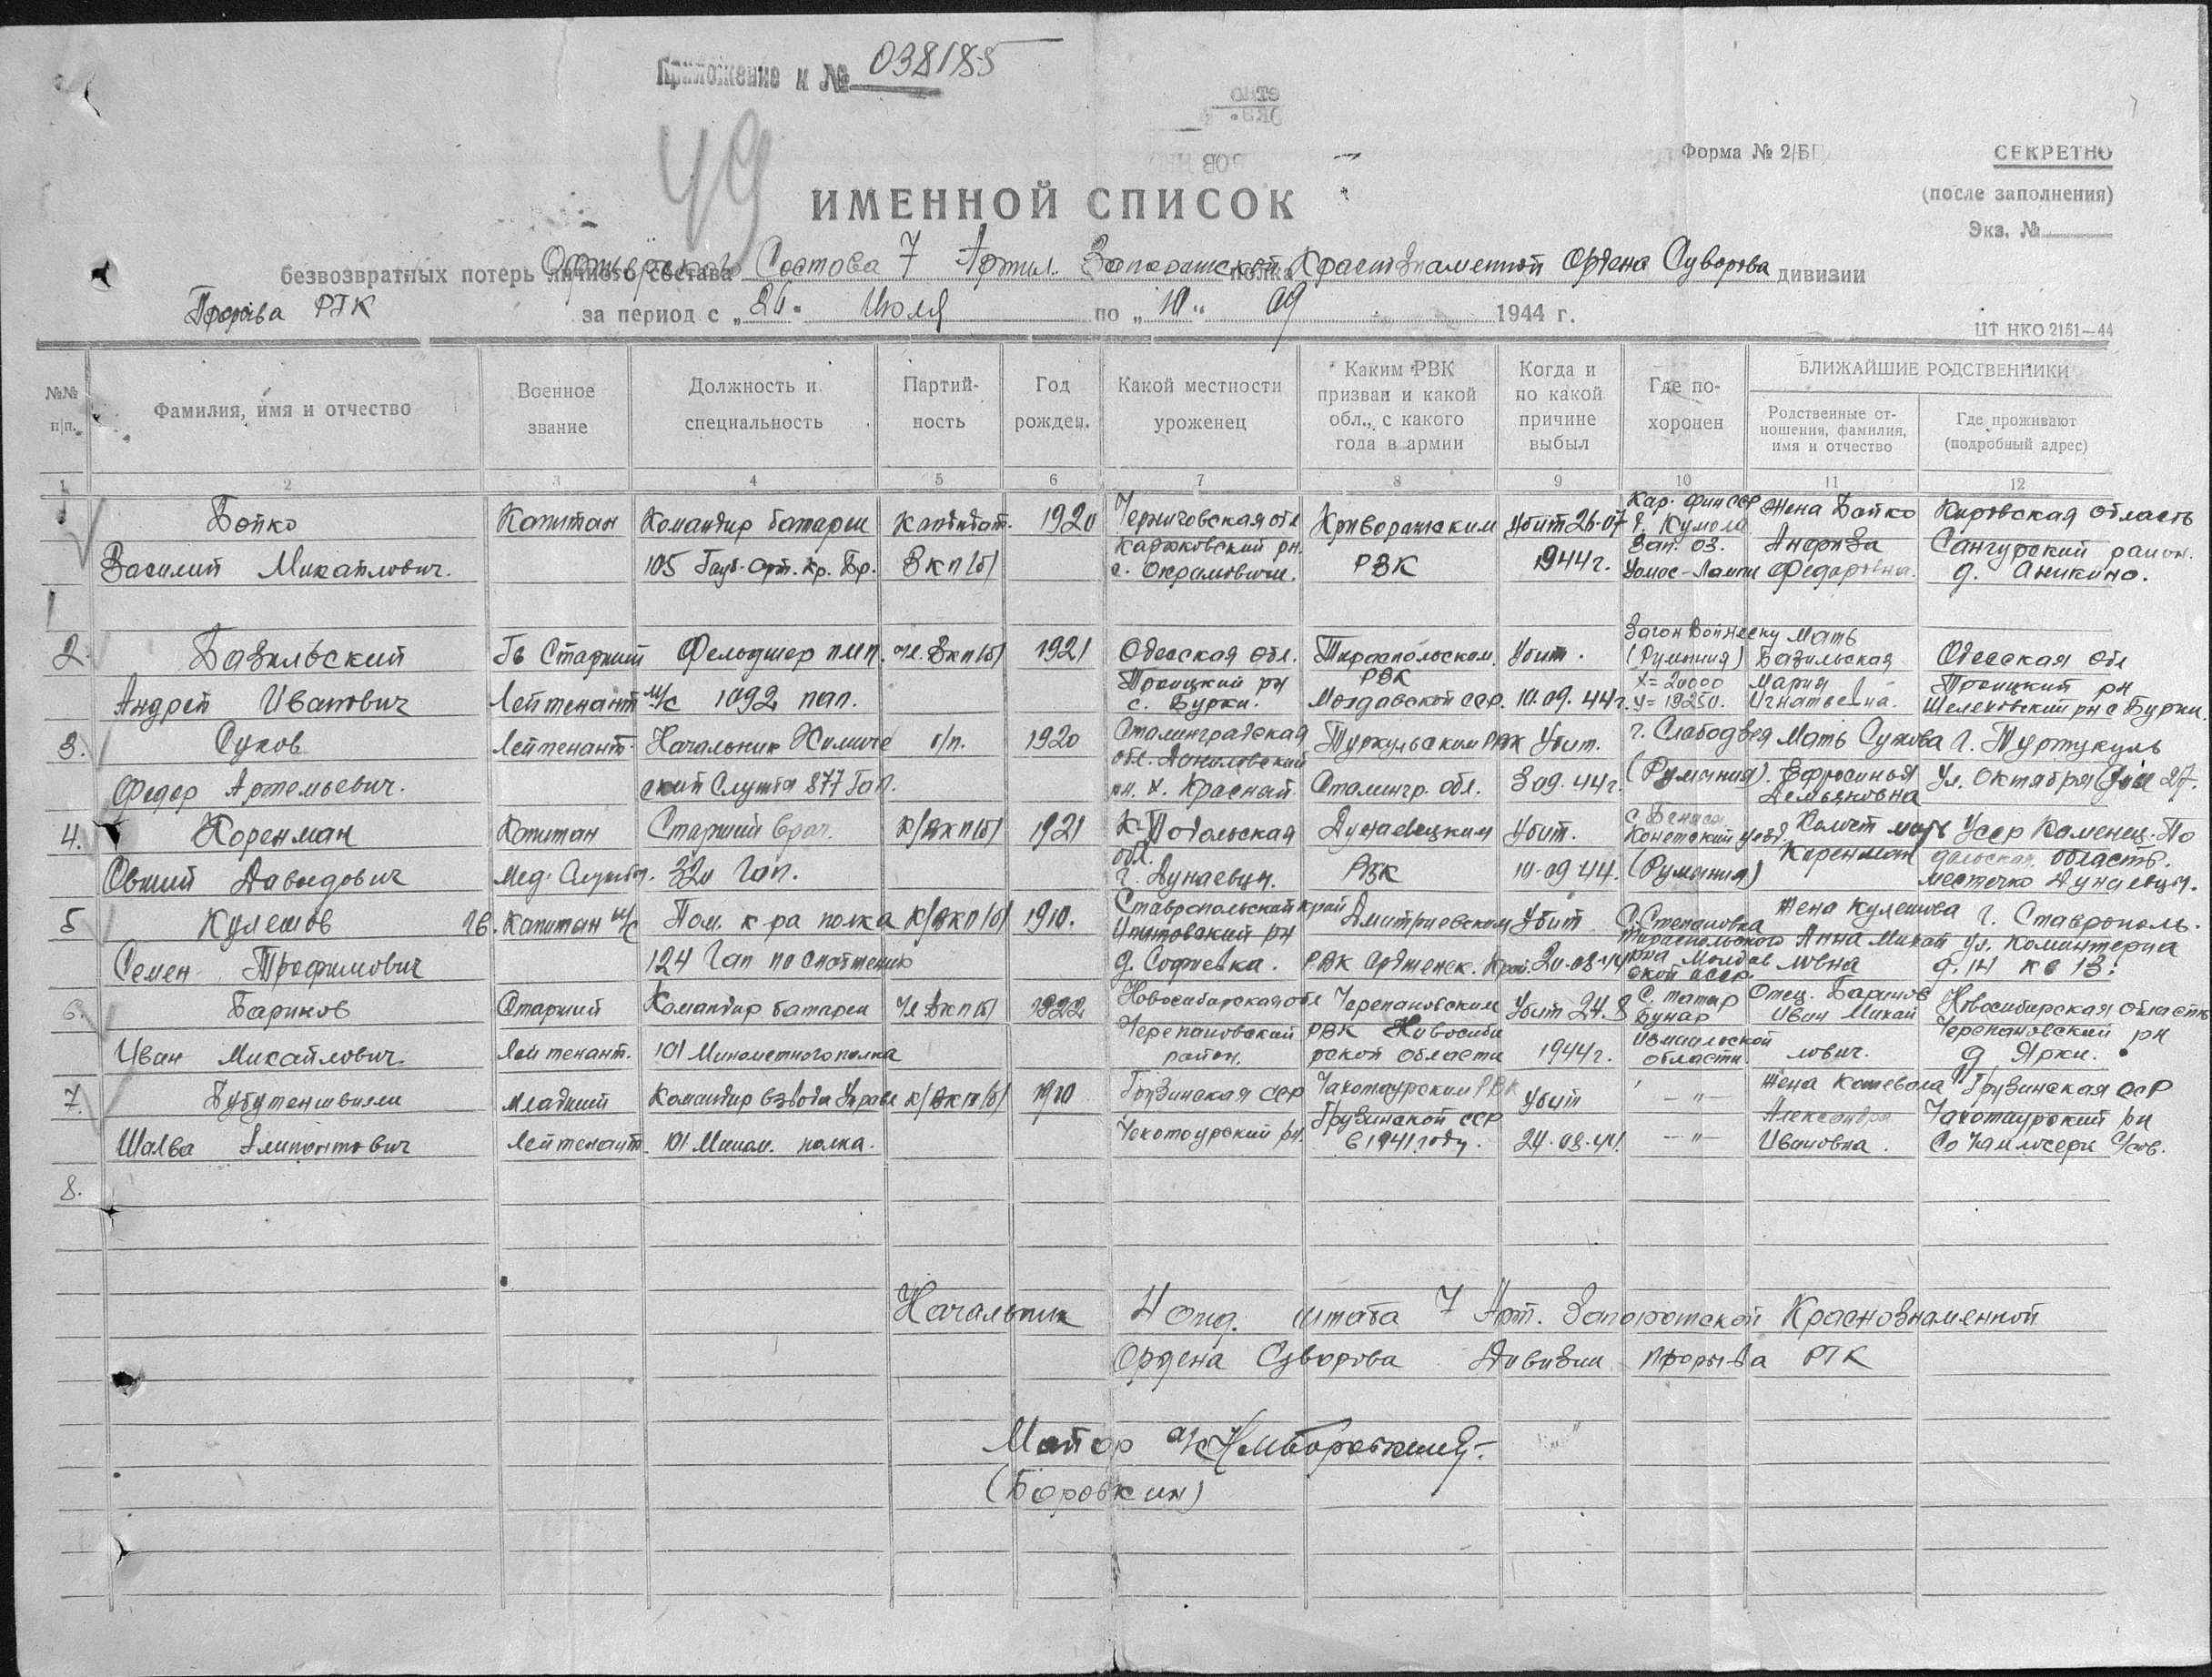 Приложение к № 038185
49
Форма № 2/БП
СЕКРЕТНО
(после заполнения)
Экз. №
ИМЕННОЙ СПИСОК
безвозвратных потерь личного состава Офицерского Состава 7 Артил. Запорожской полка Краснознаменной Ордена Суворова дивизии
Прорыва РГК за период с „26" Июля по „10" 09 1944 г.
ЦТ НКО 2151—44
№№ п/п. Фамилия, имя и отчество Военное звание Должность и специальность Партийность Год рожден. Какой местности уроженец Каким РВК призван и какой обл., с какого года в армии Когда и по какой причине выбыл Где похоронен БЛИЖАЙШИЕ РОДСТВЕННИКИ
Родственные отношения, фамилия, имя и отчество Где проживают (подробный адрес)
1 2 3 4 5 6 7 8 9 10 11 12
1 Бойко Капитан Командир батареи кандидат. 1920 Черниговская обл Криворожским Убит 26-07 Кар. Фин ССР Жена Бойко Кировская область
Василий Михайлович. 105 Гауб. Арт. Бр. ВКП(б) с. РВК 1944 г. Зап. оз. Анфиза Федоровна. район. д. Аникино.
2. Базильский Гв Старший Фельдшер ПМП. чл. ВКП(б) 1921 Одесская обл. Тираспольским Убит. (Румыния) Мать Базильская Одесская обл
Андрей Иванович Лейтенант м/с 1092 пап. Троицкий рн с. Бурки. РВК Молдавской ССР. 10.09.44 г. Х=20000 У=19250. Мария Игнатьевна. Троицкий рн с Бурки
3. Суков Лейтенант Начальник Химиче б/п. 1920 Сталинградская обл. Даниловский РВК Убит. г. Слободзея Мать Сукова г. Турткуль
Федор Артемьевич. ской Службы 877 Гап. рн. х. Красный Сталингр. обл. 3 09.44 г. (Румыния). Ефросинья Демьяновна Ул. Октября 27.
4. Коренман Капитан Старший врач. к/ВКП(б) 1921 К-Подольская обл. Дунаевецким Убит. уезд. мать Коренман Усср Каменец-По
Овший Давыдович Мед. Службы. 320 Гап. г. Дунаевцы. РВК 10-09 44. (Румыния) дольская область. местечко Дунаевцы.
5 Кулешов Гв. Капитан и/с Пом. к-ра полка к/ВКП(б) 1910. Ставропольский край Дмитриевским Убит С. Степановка Жена Кулешова г. Ставрополь.
Семен Трофимович 124 Гап по снабжению рн д. Софиевка. РВК Орджоник. Край. 20-08-44 Тираспольского р-на Молдавской ССР. Анна Михайловна ул. Коминтерна д. 14 кв 13.
6. Баринов Старший Командир батареи Чл ВКП(б) 1922 Новосибирская обл Черепановским Убит 24.8 С. татар Бунар Отец. Баринов Новосибирская область
Иван Михайлович. Лейтенант. 101 Минометного полка Черепановский район. РВК Новосибирской области 1944 г. Измаильской области. Иван Михайлович. Черепановский рн д Ярки.
7. Бубутеишвили Младший Командир взвода Управл к/ВКП(б) 1910 Грузинская ССР Чахотаурским РВК Убит — " — Жена Грузинская ССР
Шалва Лейтенант. 101 Мином. полка. Чохотоурский рн. Грузинской ССР в 1941 году. 24-08-44. — " — Александра Ивановна. Чахотаурский рн
8.
Начальник 4 отд. штаба 7 Арт. Запорожской Краснознаменной
Ордена Суворова Дивизии прорыва РГК
Майор а/с
(Боровкин)